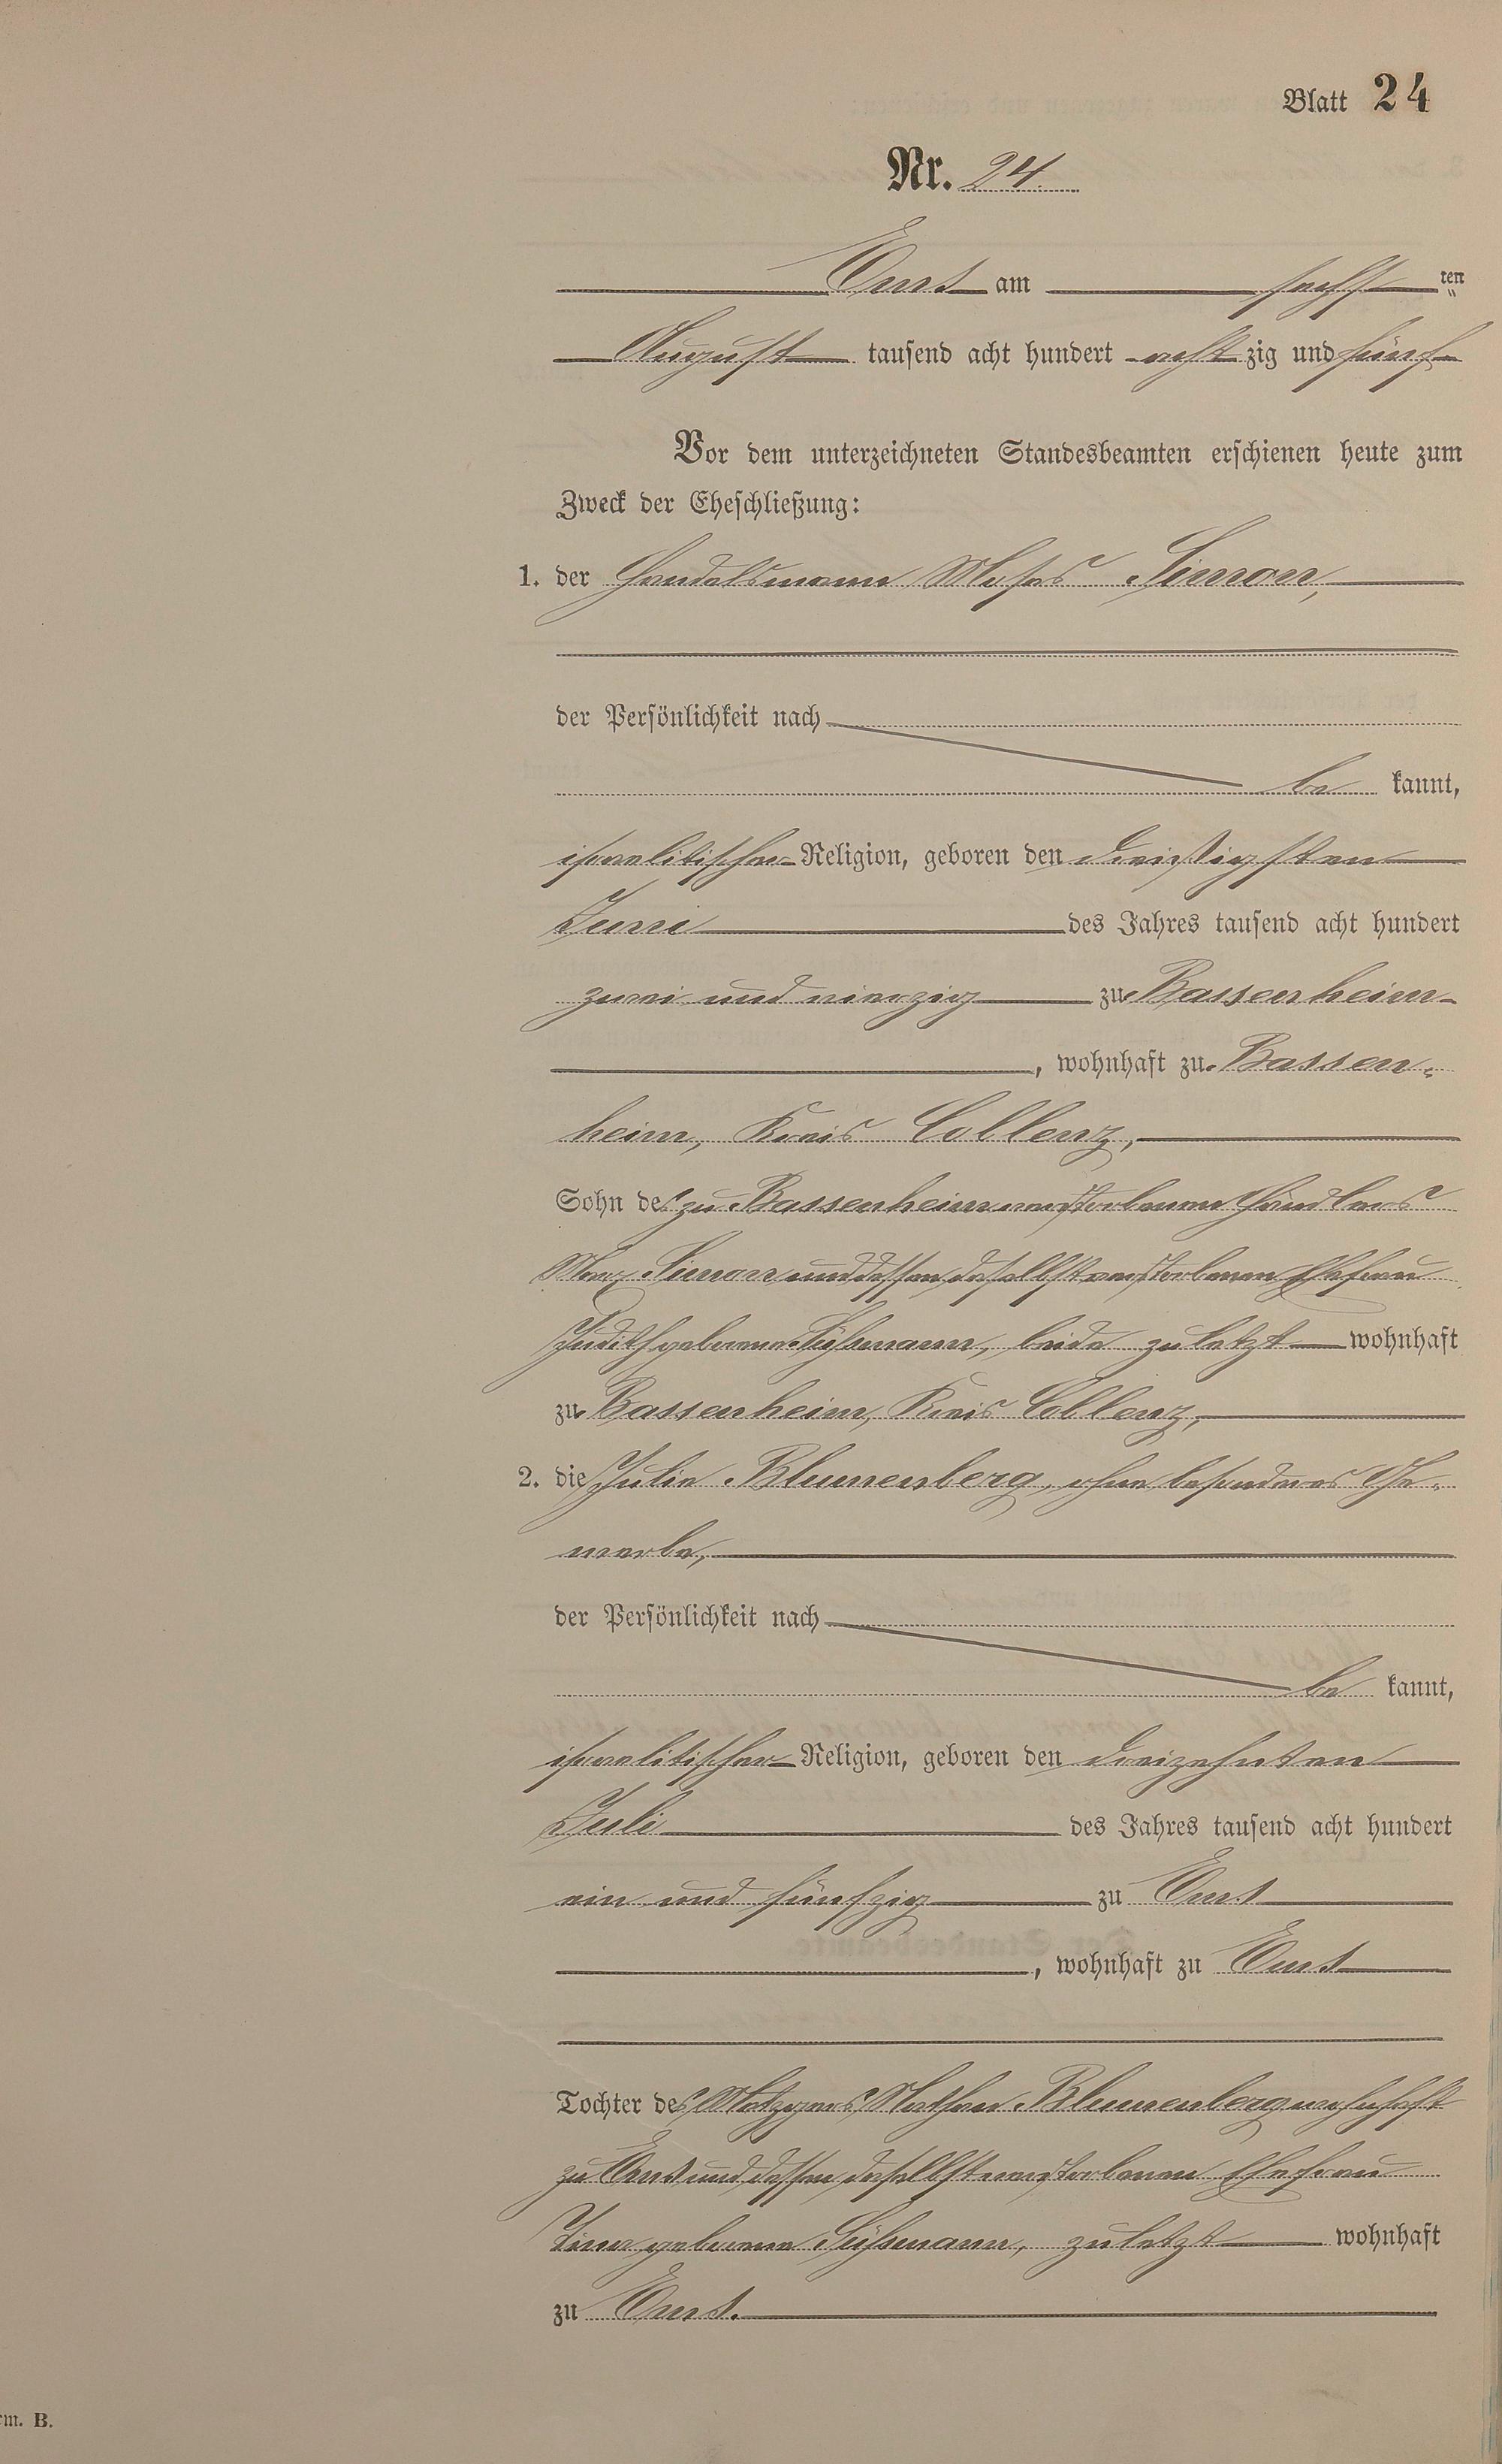 Blatt 24
Nr. 24.
Ems am sechsten
August tausend acht hundert acht zig und fünf
Vor dem unterzeichneten Standesbeamten erschienen heute zum
Zweck der Eheschließung:
1. der Handelsmann Moses Simon,
der Persönlichkeit nach
be kannt,
israelitischer Religion, geboren den dreißigsten
Juni des Jahres tausend acht hundert
zwei und vierzig zu Bassenheim
, wohnhaft zu Bassen-
heim, Kreis Coblenz,
Sohn des zu Bassenheim verstorbenen Händlers
Simon und dessen daselbst verstorbenen Ehefrau
Judith geborene Süßmann, beide zuletzt wohnhaft
zu Bassenheim, Kreis Coblenz,
2. die Julie Blumenberg, ohne besonderes Ge-
werbe,
der Persönlichkeit nach
be kannt,
israelitischer Religion, geboren den dreizehnten
Juli des Jahres tausend acht hundert
ein und fünfzig zu Ems
, wohnhaft zu Ems
Tochter des Metzgers Nathan Blumenberg wohnhaft
zu Ems und dessen daselbst verstorbenen Ehefrau
geborene Süßmann, zuletzt wohnhaft
zu Ems.
rm. B.